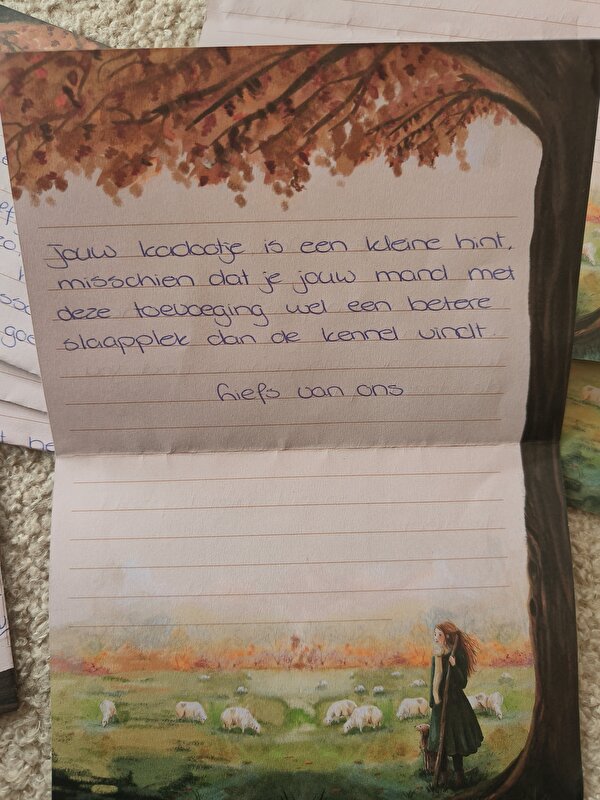 Jouw kadootje is een kleine hint.
misschien dat je jouw mand met
deze toevoeging wel een betere
slaapplek dan de kennel vindt.
liefs van ons